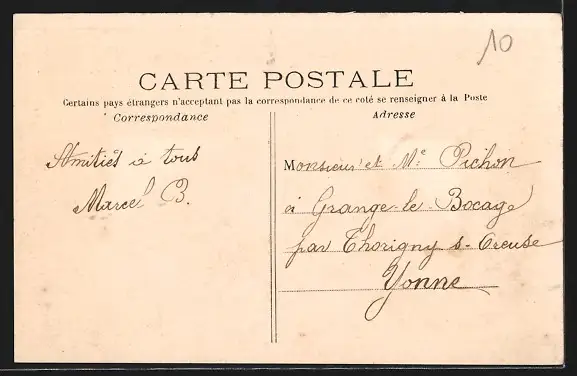 10
CARTE POSTALE
Certains pays étrangers n'acceptant pas la correspondance de ce coté se renseigner à la Poste
Correspondance
Adresse
Amitiés à tous
Marcel B.
Monsieur et Me Pichon
à Grange-le-Bocage
par Thorigny s-Oreuse
Yonne